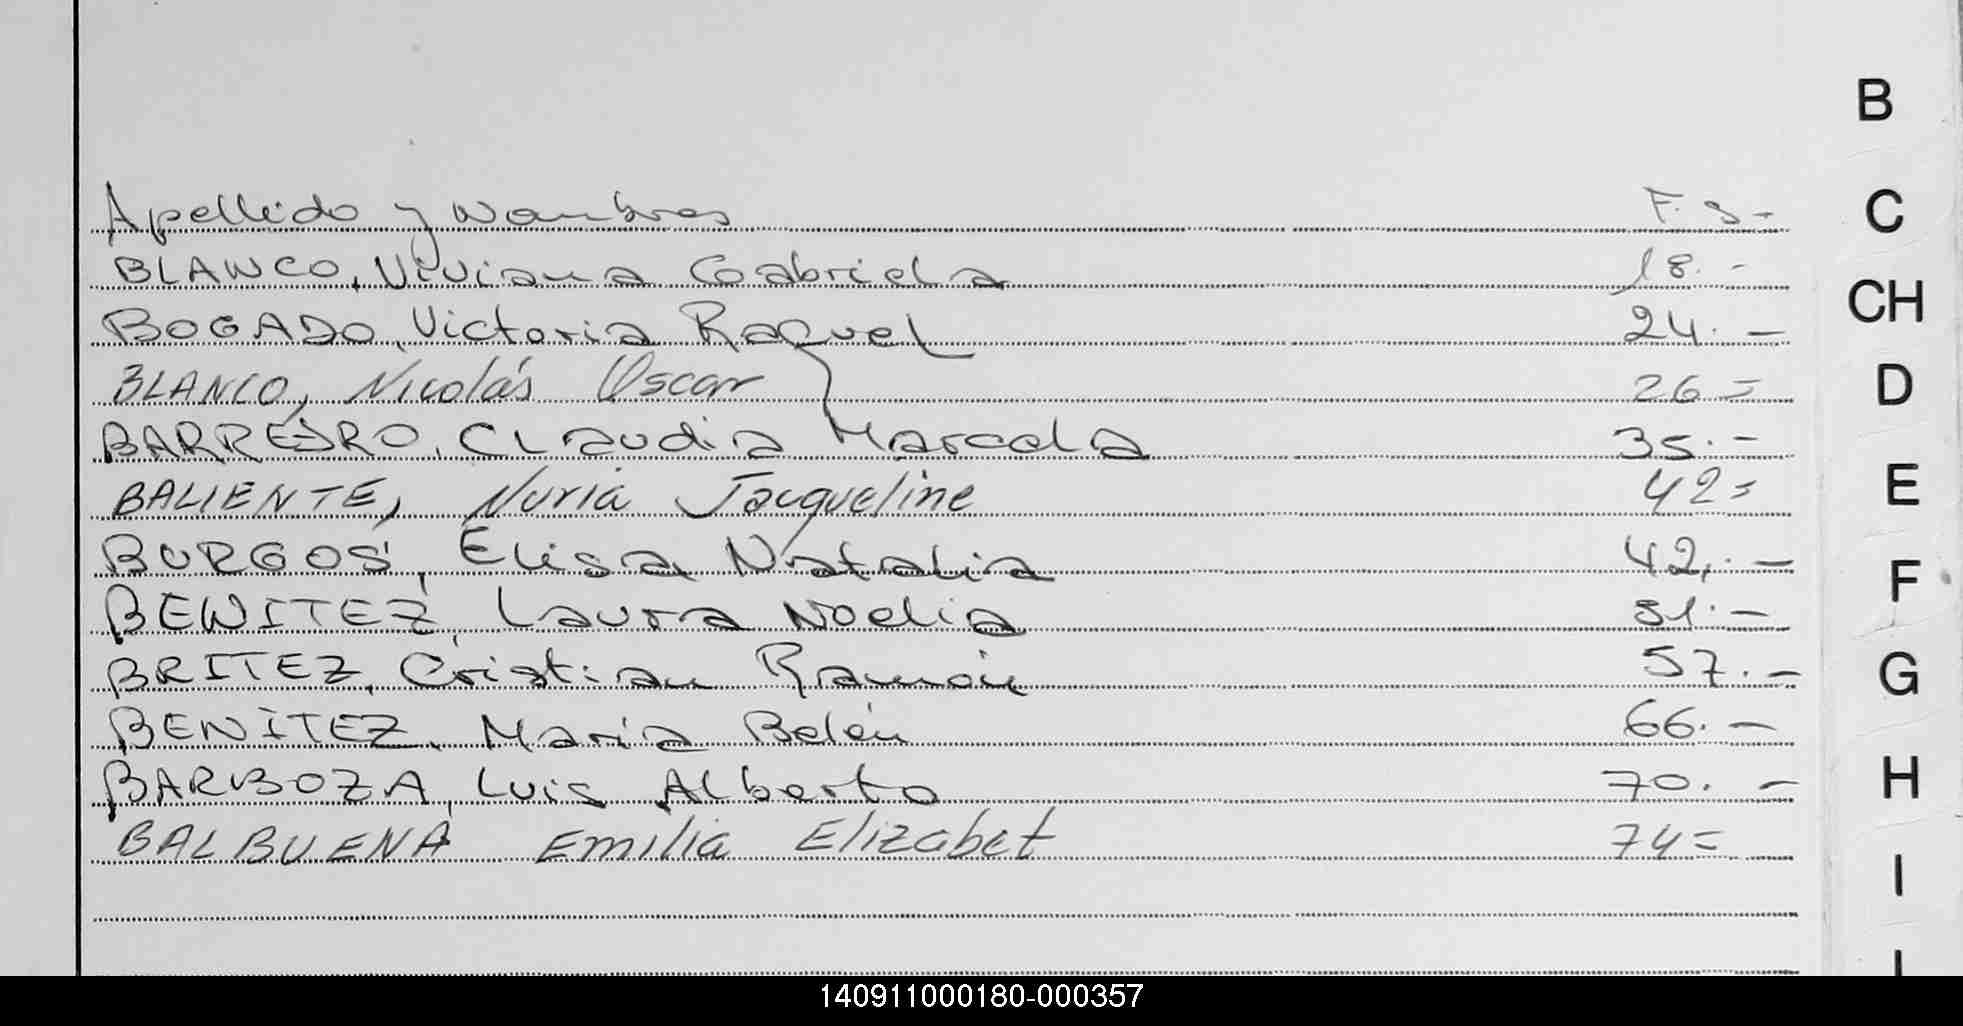 B
C
CH
D
E
F
G
H
I
Apellido y Nombres F.s-
BLANCO, Viviana Gabriela 18.-
BOGADO, Victoria Raquel 24.-
BLANCO, Nicolás Oscar 26=
BARREIRO, Claudia Marcela 35.-
BALIENTE, Nuria Jacqueline 42=
BURGOS, Elisa Natalia 42.-
BENITEZ, Laura Noelia 51.-
BRITEZ, Cristian Ramón 57.-
BENITEZ, Maria Belén 66.-
BARBOZA, Luis Alberto 70.-
BALBUENA Emilia Elizabet 74=
140911000180-000357